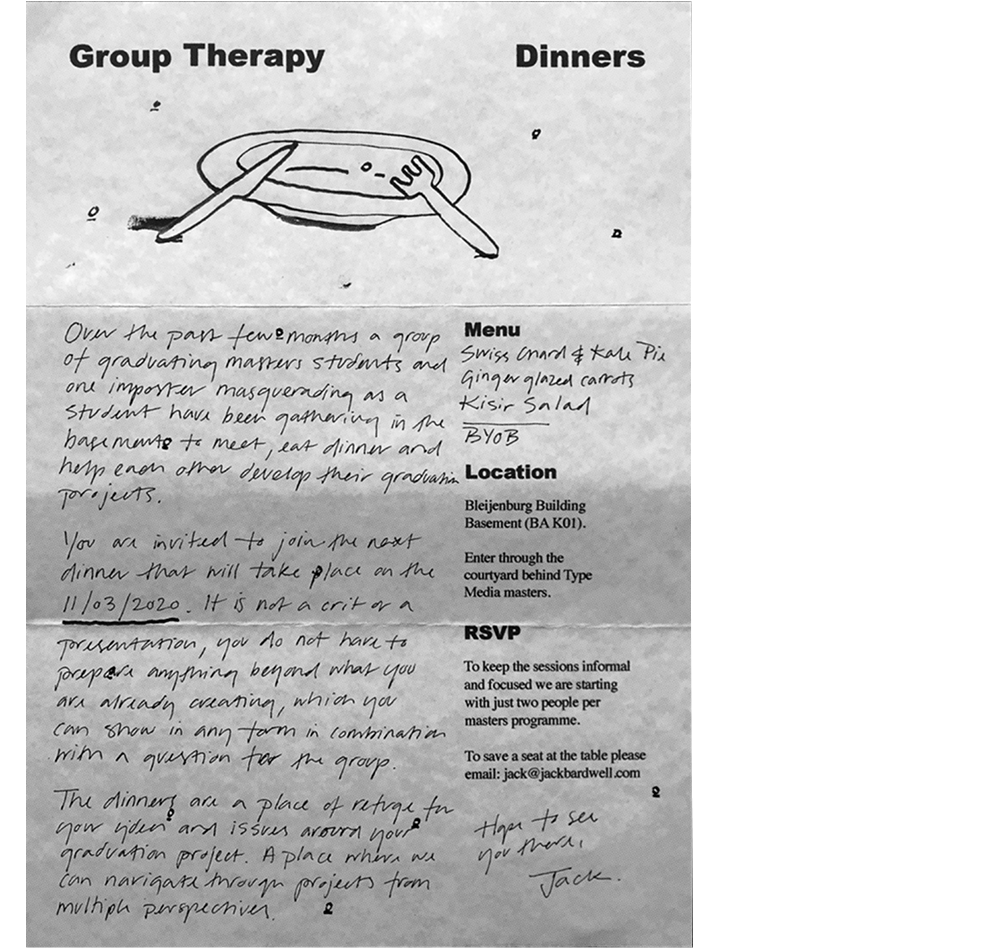 Group Therapy Dinners
Over the past few months a group
of graduating masters students and
one imposter masquerading as a
student have been gathering in the
basement to meet, eat dinner and
help each other develop their graduation
projects.
You are invited to join the next
dinner that will take place on the
11/03/2020. It is not a crit or a
presentation, you do not have to
prepare anything beyond what you
are already creating, which you
can show in any form in combination
with a question for the group.
The dinners are a place of refuge for
your ideas and issues around your
graduation project. A place where we
can navigate through projects from
multiple perspectives.
Menu
Swiss Chard & Kale Pie
Ginger glazed carrots
Kisir Salad
BYOB
Location
Bleijenburg Building
Basement (BA K01).
Enter through the
courtyard behind Type
Media masters.
RSVP
To keep the sessions informal
and focused we are starting
with just two people per
masters programme.
To save a seat at the table please
email: jack@jackbardwell.com
Hope to see
you there,
Jack.